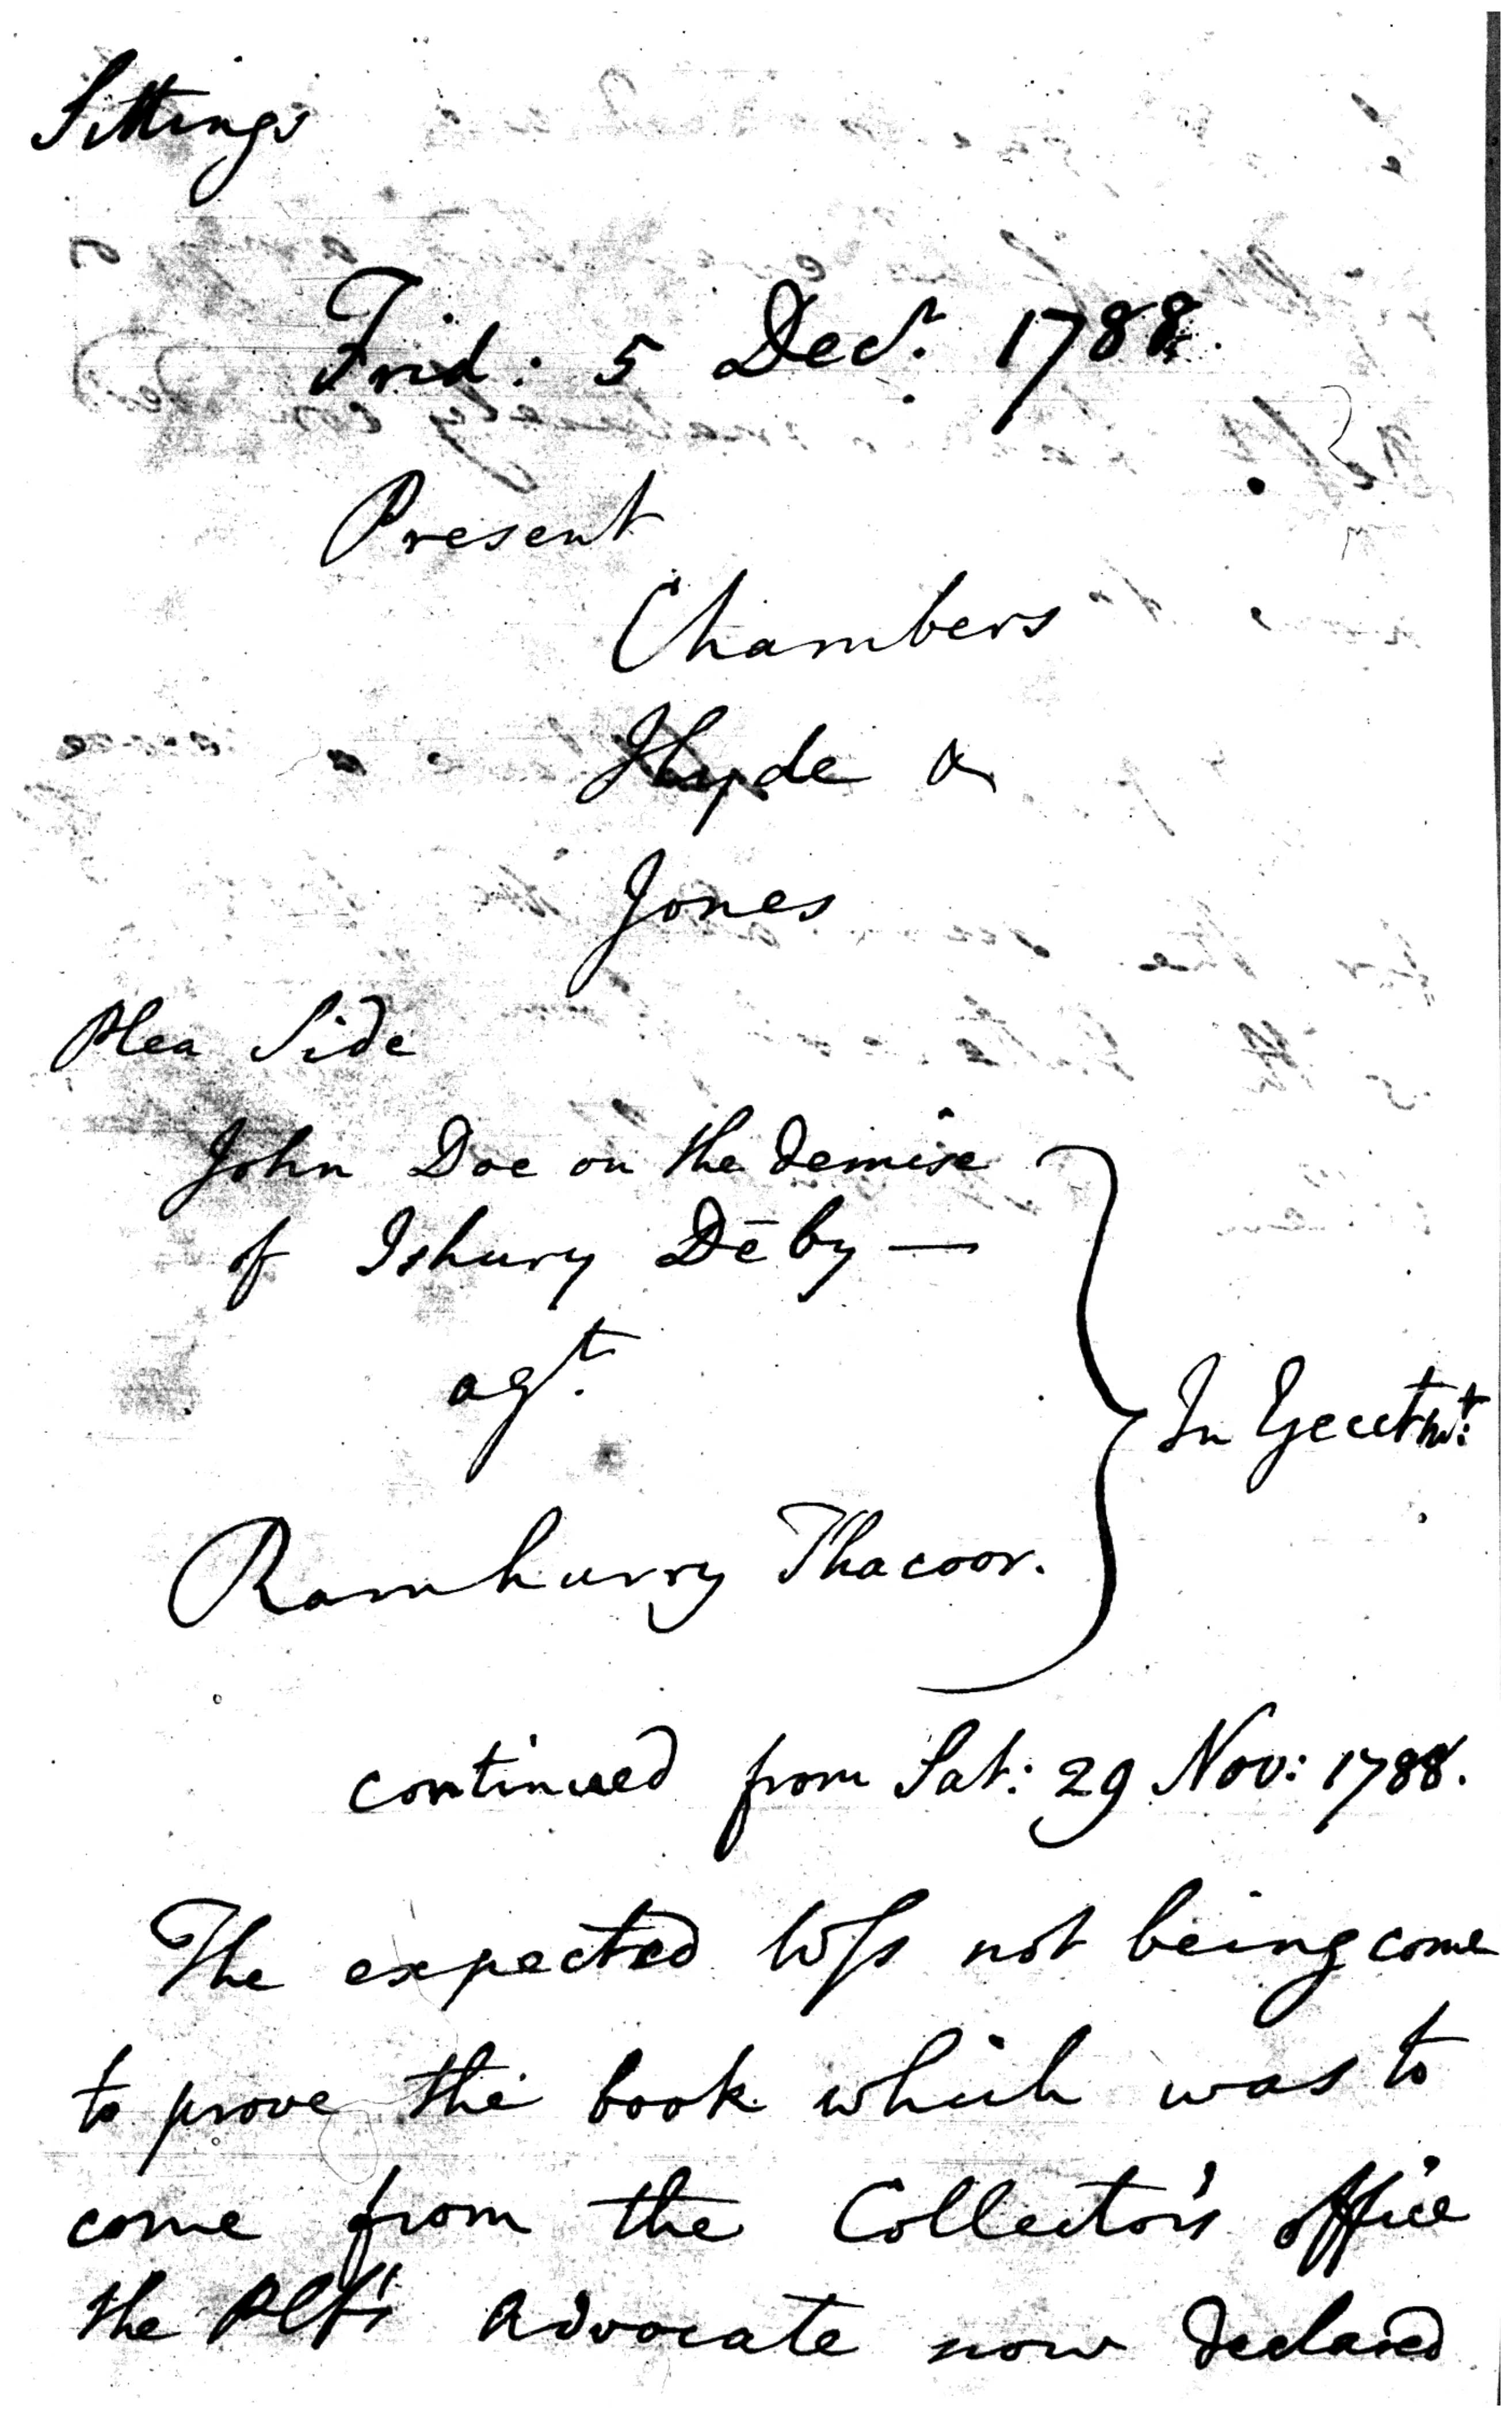 Sittings
Frid: 5 Decr. 1788.
Present
Chambers
Hyde &
Jones
Plea Side
John Doe on the demise
of Ishury Dēby —
agt.
Ramhurry Thacoor.
In Ejectmt:
continued from Sat: 29 Nov: 1788.
The expected Wss not being come
to prove the book which was to
come from the Collector's office
the Plt's advocate now declared